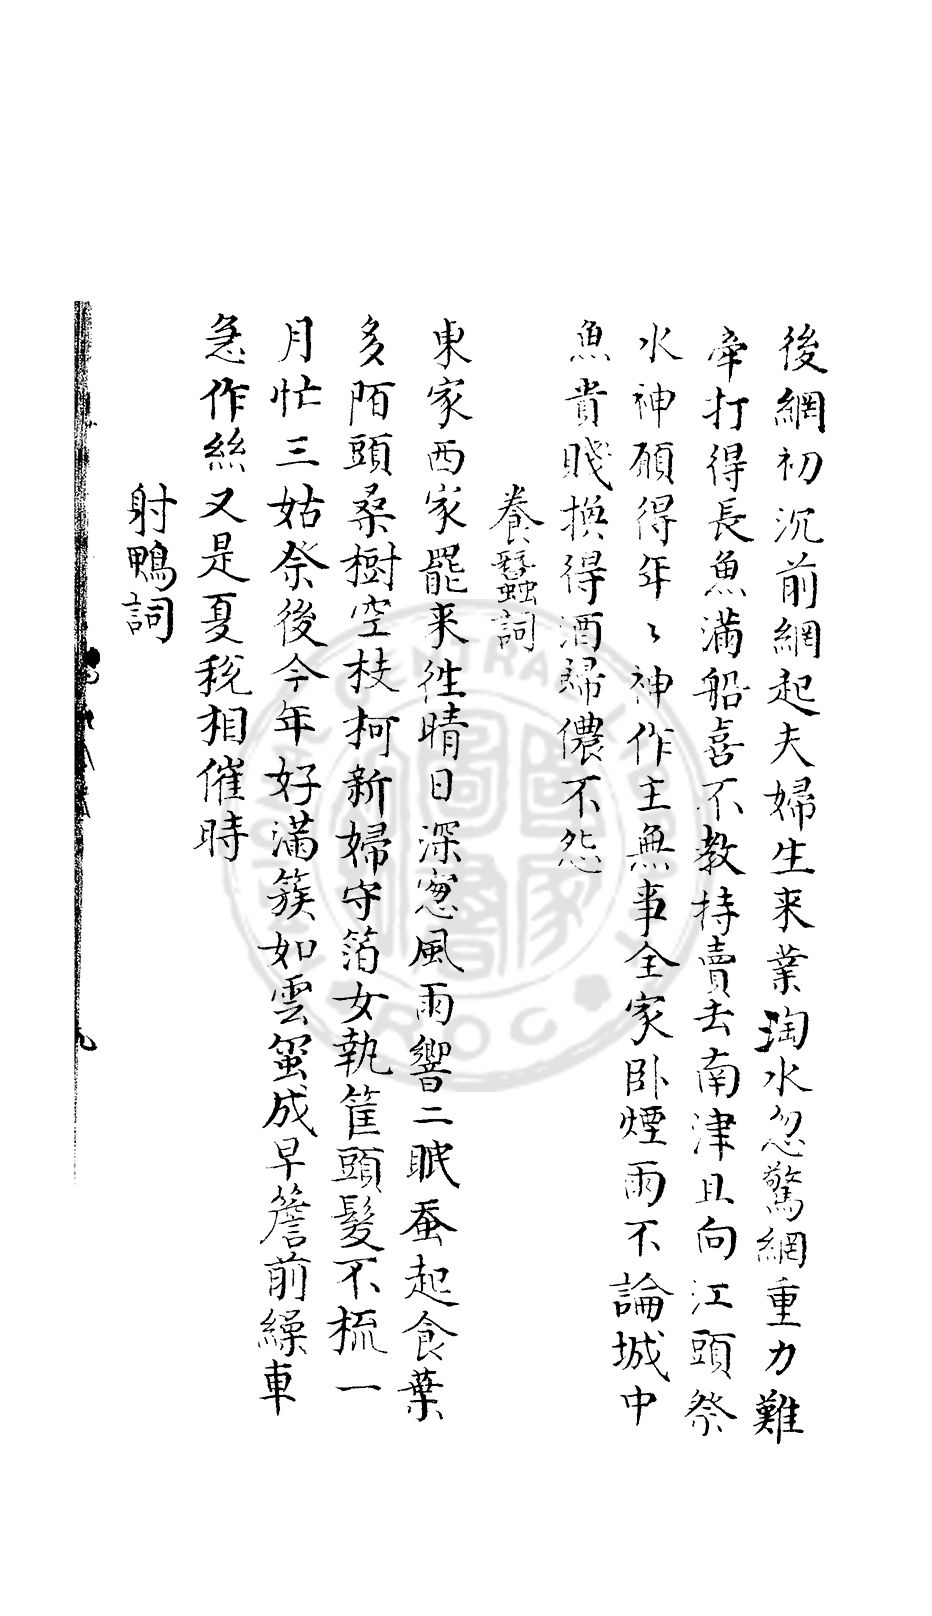 後網初沉前網起夫婦生来業淘水忽驚網重力難
牵打得長魚滿船喜不教持賣去南津且向江頭祭
水神願得年〻神作主無事全家卧煙雨不論城中
魚貴賤換得酒歸儂不怨
養蠶詞
東家西家罷来徃晴日深窓風雨響二眠蚕起食葉
多陌頭桑樹空枝柯新婦守箔女執筐頭髮不梳一
月忙三姑祭後今年好滿簇如雲蠒成早簷前繰車
急作絲又是夏税相催時
射鴨詞
NATIONAL CENTRAL LIBRARY
ROC
國家圖書